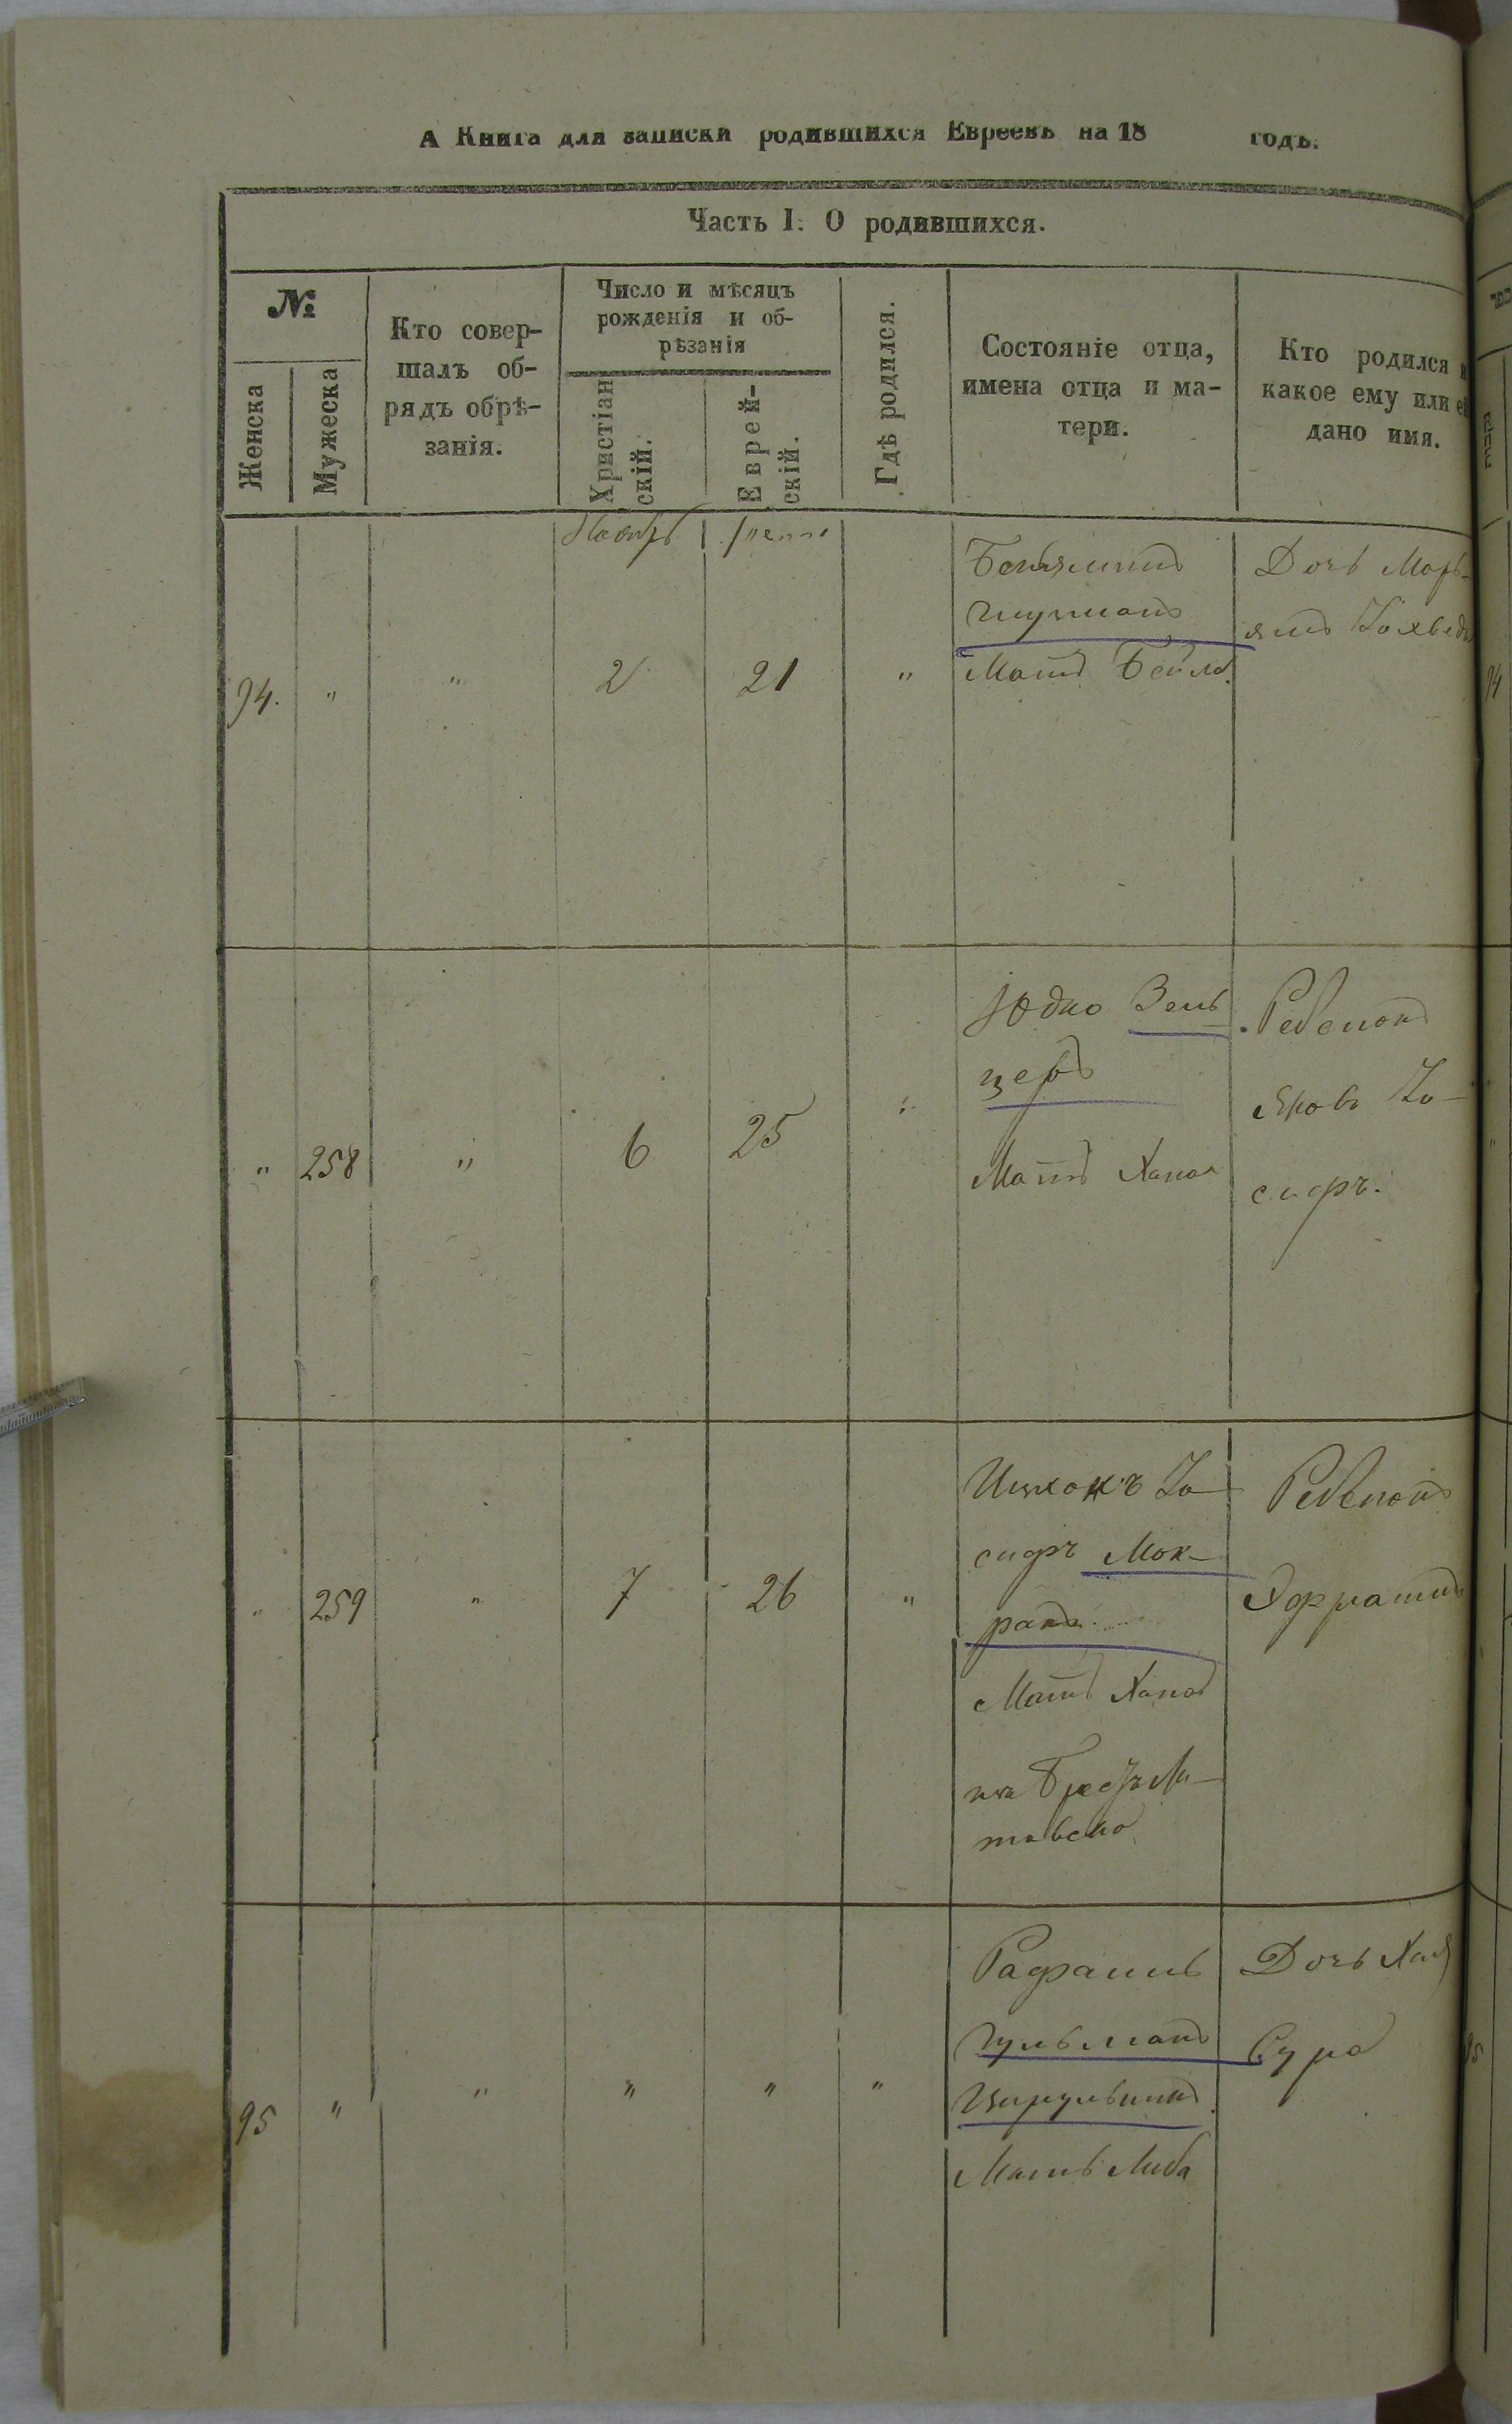 А Книга для записки родившихся Евреевъ на 18 годъ.
Часть I. О родившихся.
№
Женска
Мужеска
Кто совер-
шалъ об-
рядъ обрѣ-
занія.
Число и мѣсяцъ
рожденія и об-
рѣзанія
Христіан
скій.
Еврей-
скій.
Гдѣ родился.
Состояніе отца,
имена отца и ма-
тери.
Кто родился и
какое ему или ей
дано имя.
Ноябрь
94. " " 2 21 "
Беньяминъ
Мать Бейла
Дочь Марь-
ямъ Іохведъ
" 258 " 6 25 "
Юдко Зель
церъ
Мать Хана
Ребенокъ
Яковъ Іо-
сифъ.
" 259 " 7 26 "
Ицхокъ Іо
сифъ Мок-
Мать Хана
изъ Брестъ Ли-
товска
Ребенокъ
Эфраимъ
95 " " " " "
Рафаиль
Мать Либа
Дочь Хая
Сура